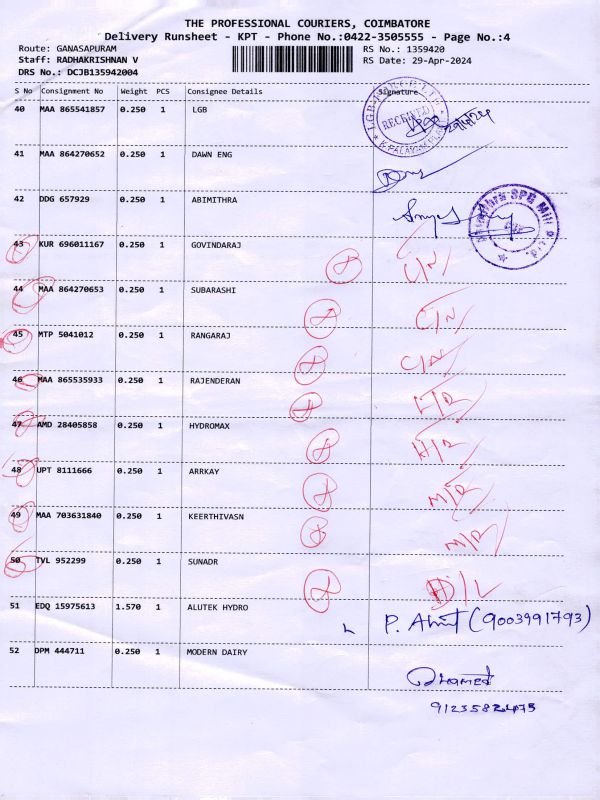 THE PROFESSIONAL COURIERS, COIMBATORE
Delivery Runsheet - KPT - Phone No.:0422-3505555 - Page No.:4
Route: GANASAPURAM RS No.: 1359420
Staff: RADHAKRISHNAN V RS Date: 29-Apr-2024
DRS No.: DCJB135942004
S No Consignment No Weight PCS Consignee Details Signature
40 MAA 865541857 0.250 1 LGB
RECEIVED
29/4/24
41 MAA 864270652 0.250 1 DAWN ENG
42 DDG 657929 0.250 1 ABIMITHRA
43 KUR 696011167 0.250 1 GOVINDARAJ C/N
44 MAA 864270653 0.250 1 SUBARASHI C/N
45 MTP 5041012 0.250 1 RANGARAJ C/N
46 MAA 865535933 0.250 1 RAJENDERAN
47 AMD 28405858 0.250 1 HYDROMAX
48 UPT 8111666 0.250 1 ARRKAY M/R
49 MAA 703631840 0.250 1 KEERTHIVASN M/R
50 TVL 952299 0.250 1 SUNADR D/L
51 EDQ 15975613 1.570 1 ALUTEK HYDRO P. (9003991793)
52 DPM 444711 0.250 1 MODERN DAIRY